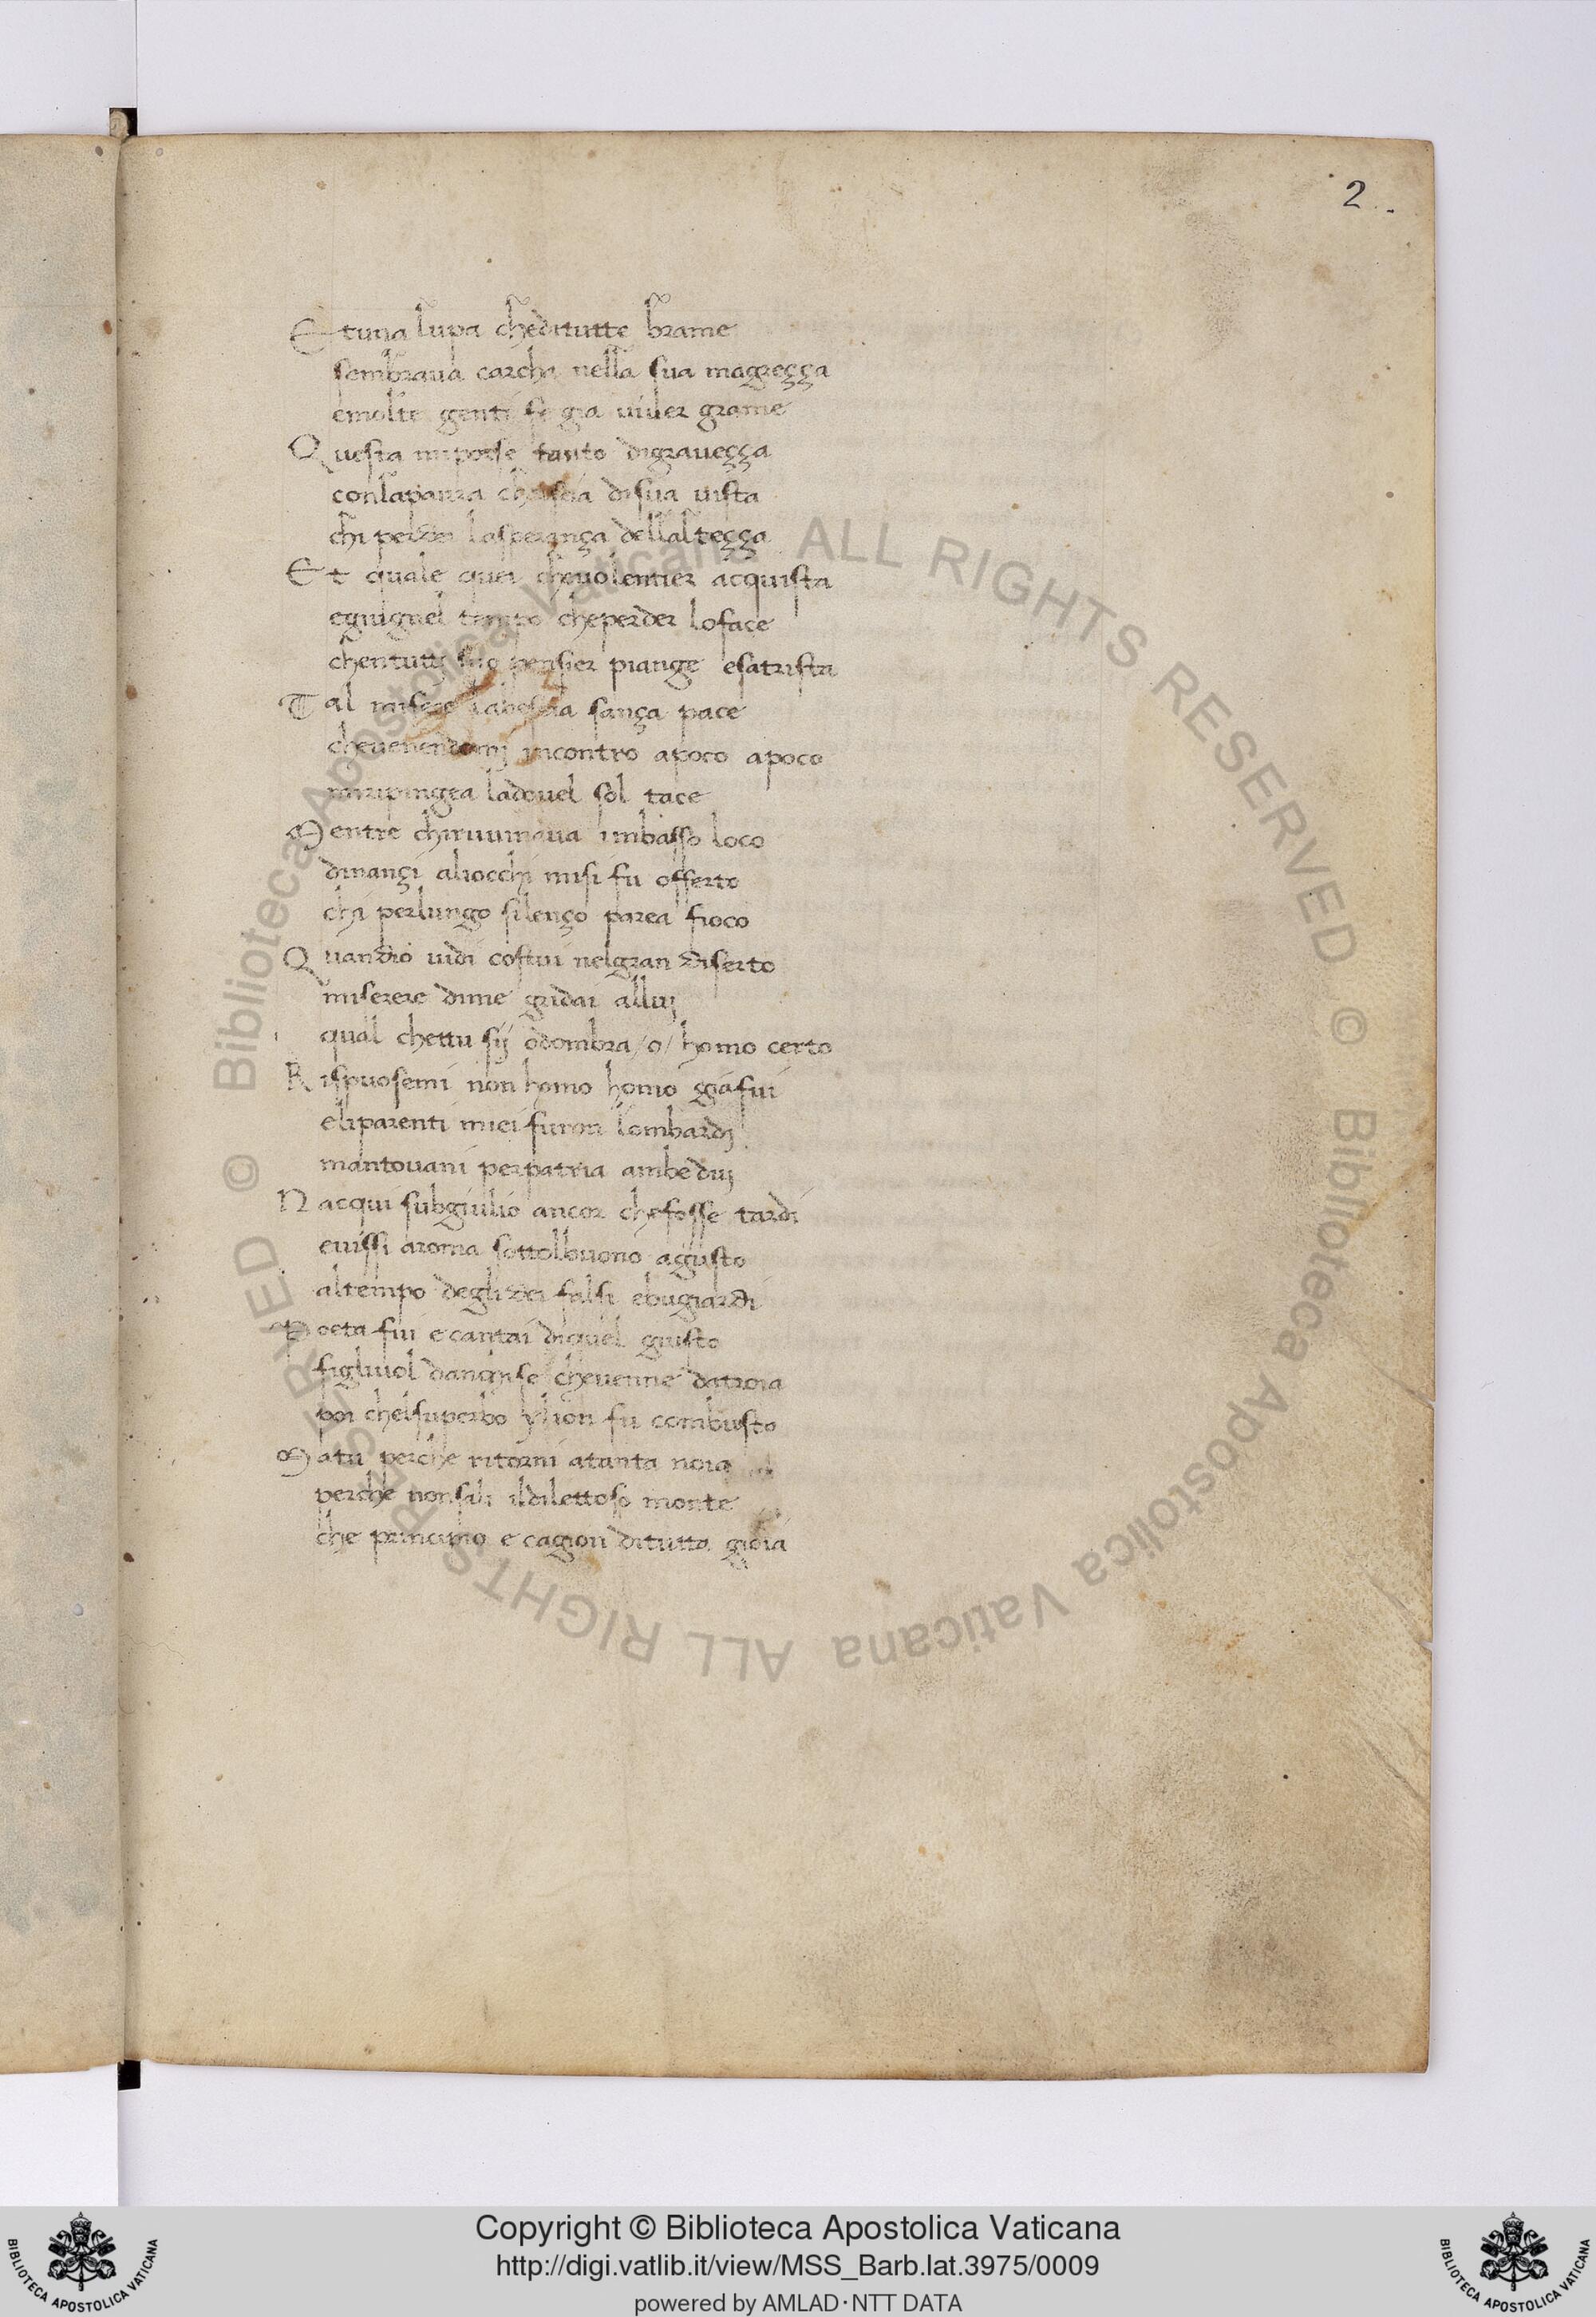 2
Et una lupa che ditutte brame
sembraua carcha nella sua magreçça
emolte genti fe gia uiuer grame
Questa miporse tanto digraueçça
conlapaura chuscia disua uista
chi perdei lasperança dellalteçça
Et quale quei cheuolentier acquista
egiugnel tempo cheperder loface
chentutti suo pensier piange esatrista
Tal mifece labestia sança pace
cheuenendomj incontro apoco apoco
miripingea ladouel sol tace
Mentre chiruuinaua imbasso loco
dinançi aliocchi misi fu offerto
chi perlungo silenço parea fioco
Quandio uidi costui nelgran diserto
miserere dime gridai alluj
qual chettu sij odombra/o/homo certo
Rispuosemi non homo homo giafui
eliparenti miei furon lombardj
mantouani perpatria ambeduj
Nacqui subgiulio ancor chefosse tardi
euissi aroma sottolbuono agusto
altempo deglidei falsi ebugiardi
Poeta fui e cantai diquel giusto
figliuol danchise cheuenne datroia
poi chelsuperbo ylion fu combusto
Matu perche ritorni atanta noia
perche nonsali ildilettoso monte
che principio e cagion ditutta gioia
© Biblioteca Apostolica Vaticana ALL RIGHTS RESERVED © Biblioteca Apostolica Vaticana ALL RIGHTS RESERVED
Copyright © Biblioteca Apostolica Vaticana
http://digi.vatlib.it/view/MSS_Barb.lat.3975/0009
powered by AMLAD·NTT DATA
BIBLIOTECA APOSTOLICA VATICANA
BIBLIOTECA APOSTOLICA VATICANA